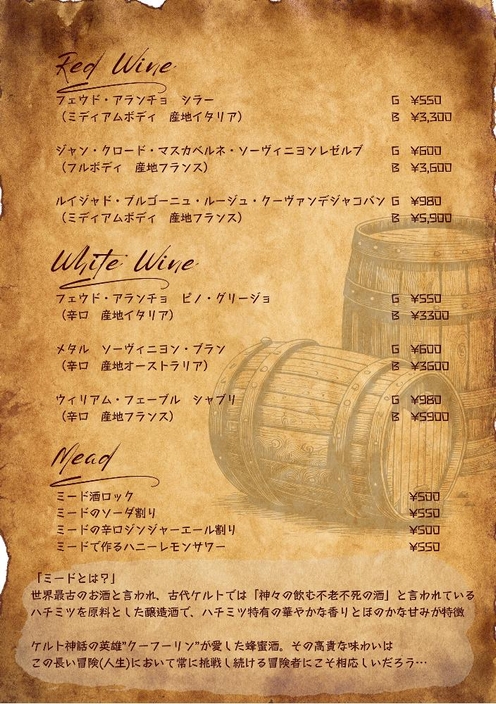 Red Wine
フェウド・アランチョ シラー G ¥550
（ミディアムボディ 産地イタリア） B ¥3,300
ジャン・クロード・マスカベルネ・ソーヴィニヨンレゼルブ G ¥600
（フルボディ 産地フランス） B ¥3,600
ルイジャド・ブルゴーニュ・ルージュ・クーヴァンデジャコバン G ¥980
（ミディアムボディ 産地フランス） B ¥5,900
White Wine
フェウド・アランチョ ピノ・グリージョ G ¥550
（辛口 産地イタリア） B ¥3300
メタル ソーヴィニヨン・ブラン G ¥600
（辛口 産地オーストラリア） B ¥3600
ウィリアム・フェーブル シャブリ G ¥980
（辛口 産地フランス） B ¥5900
Mead
ミード酒ロック ¥500
ミードのソーダ割り ¥550
ミードの辛口ジンジャーエール割り ¥500
ミードで作るハニーレモンサワー ¥550
「ミードとは？」
世界最古のお酒と言われ、古代ケルトでは「神々の飲む不老不死の酒」と言われている
ハチミツを原料とした醸造酒で、ハチミツ特有の華やかな香りとほのかな甘みが特徴
ケルト神話の英雄"クーフーリン"が愛した蜂蜜酒。その高貴な味わいは
この長い冒険(人生)において常に挑戦し続ける冒険者にこそ相応しいだろう…